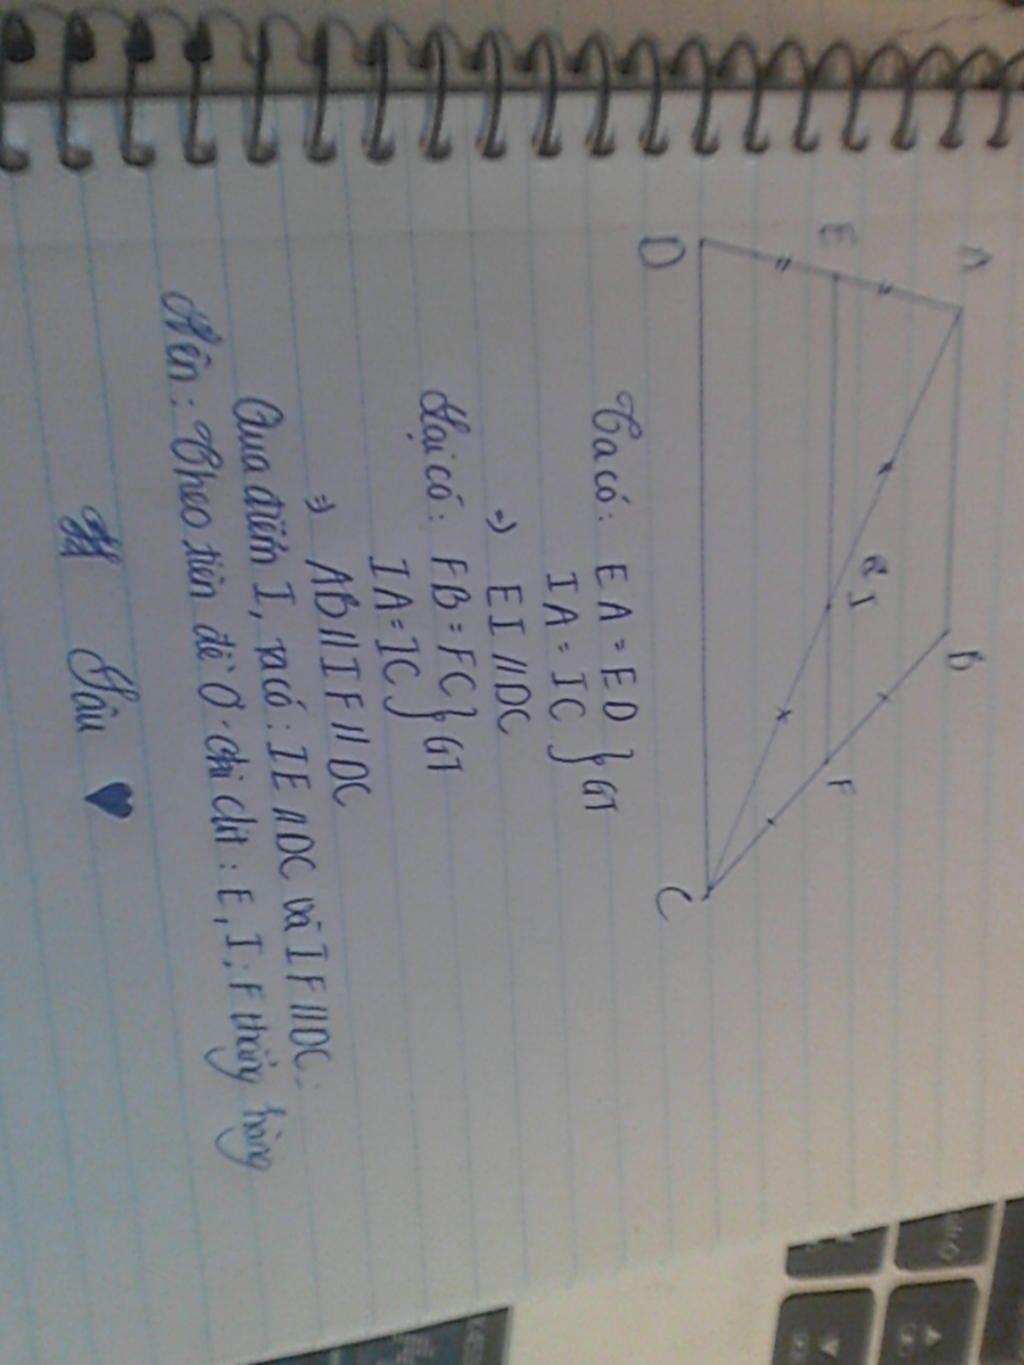 A
B
E
I
F
D
C
Ta có: EA = ED
IA = IC } GT
=) EI // DC
Lại có: FB = FC } GT
IA = IC
=) AB // IF // DC
Qua điểm I, ta có: IE // DC và IF // DC.
Nên: Theo tiên đề Ơ-clit: E, I, F thẳng hàng
♥